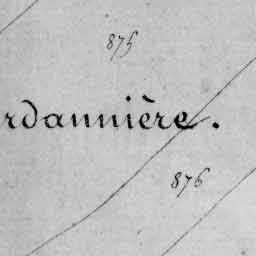 875
rdannière.
876